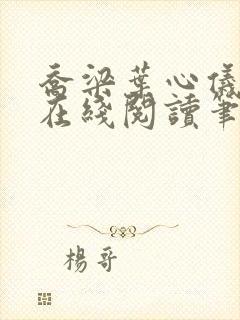 喬梁葉心儀
在綫閱讀筆
楊哥